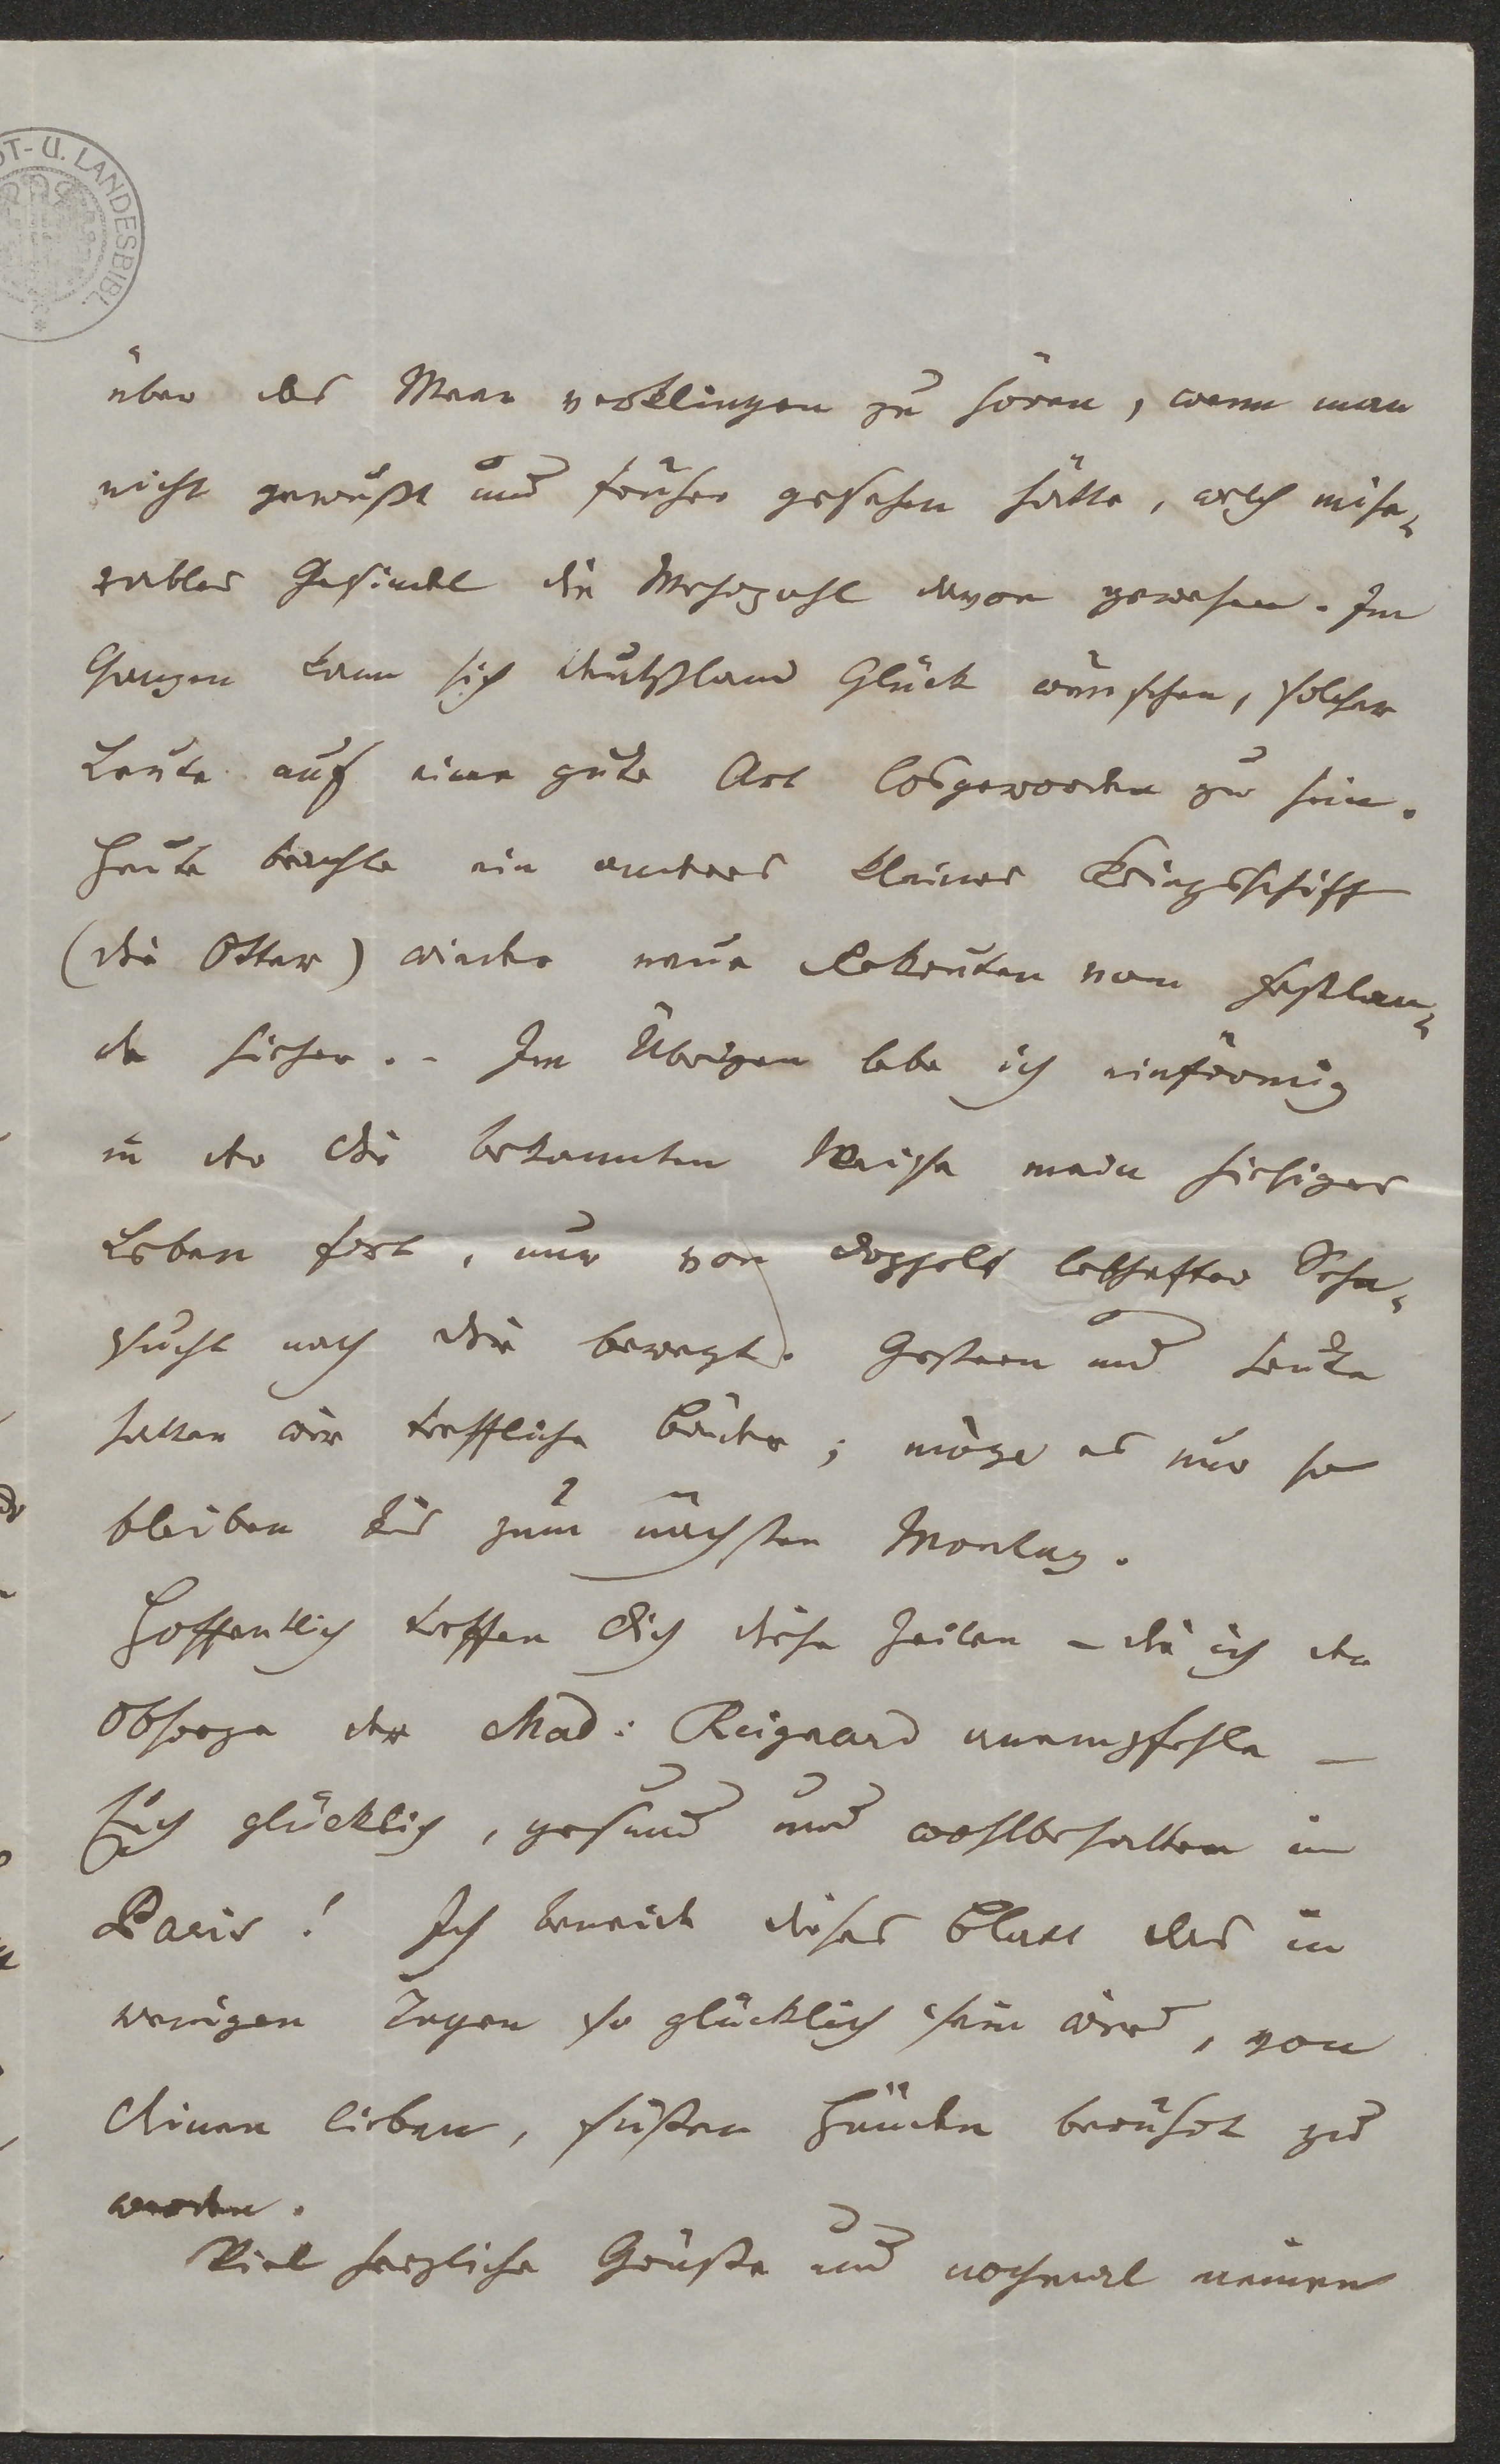 DT- U. LANDESBIBL. *
über das Meer verklingen zu hören, wenn man
nicht gewußt und früher gesehen hätte, welch mise-
rables Gesindel die Mehrzahl davon gewesen. Im
Ganzen kann sich Deutschland Glück wünschen, solcher
Leute auf eine gute Art losgeworden zu sein.
Heute brachte ein anderes kleines Kriegsschiff
(die Otter) wieder neue Rekruten vom Festlan-
de hieher. - Im Übrigen lebe ich einförmig
in der Dir bekannten Weise mein hiesiges
Leben fort, nur von doppelt lebhafter Sehn-
sucht nach Dir bewegt. Gestern und heute
hatten wir treffliche Bäder; möge es nur so
bleiben bis zum nächsten Montag.
Hoffentlich treffen Dich diese Zeilen - die ich der
Obsorge der Mad: Reignard anempfehle -
Euch glücklich, gesund und wohlbehalten in
Paris! Ich beneide dieses Blatt das in
wenigen Tagen so glücklich sein wird, von
Deinen lieben, süßen Händen berührt zu
werden.
Viel herzliche Grüße und nochmal meinen